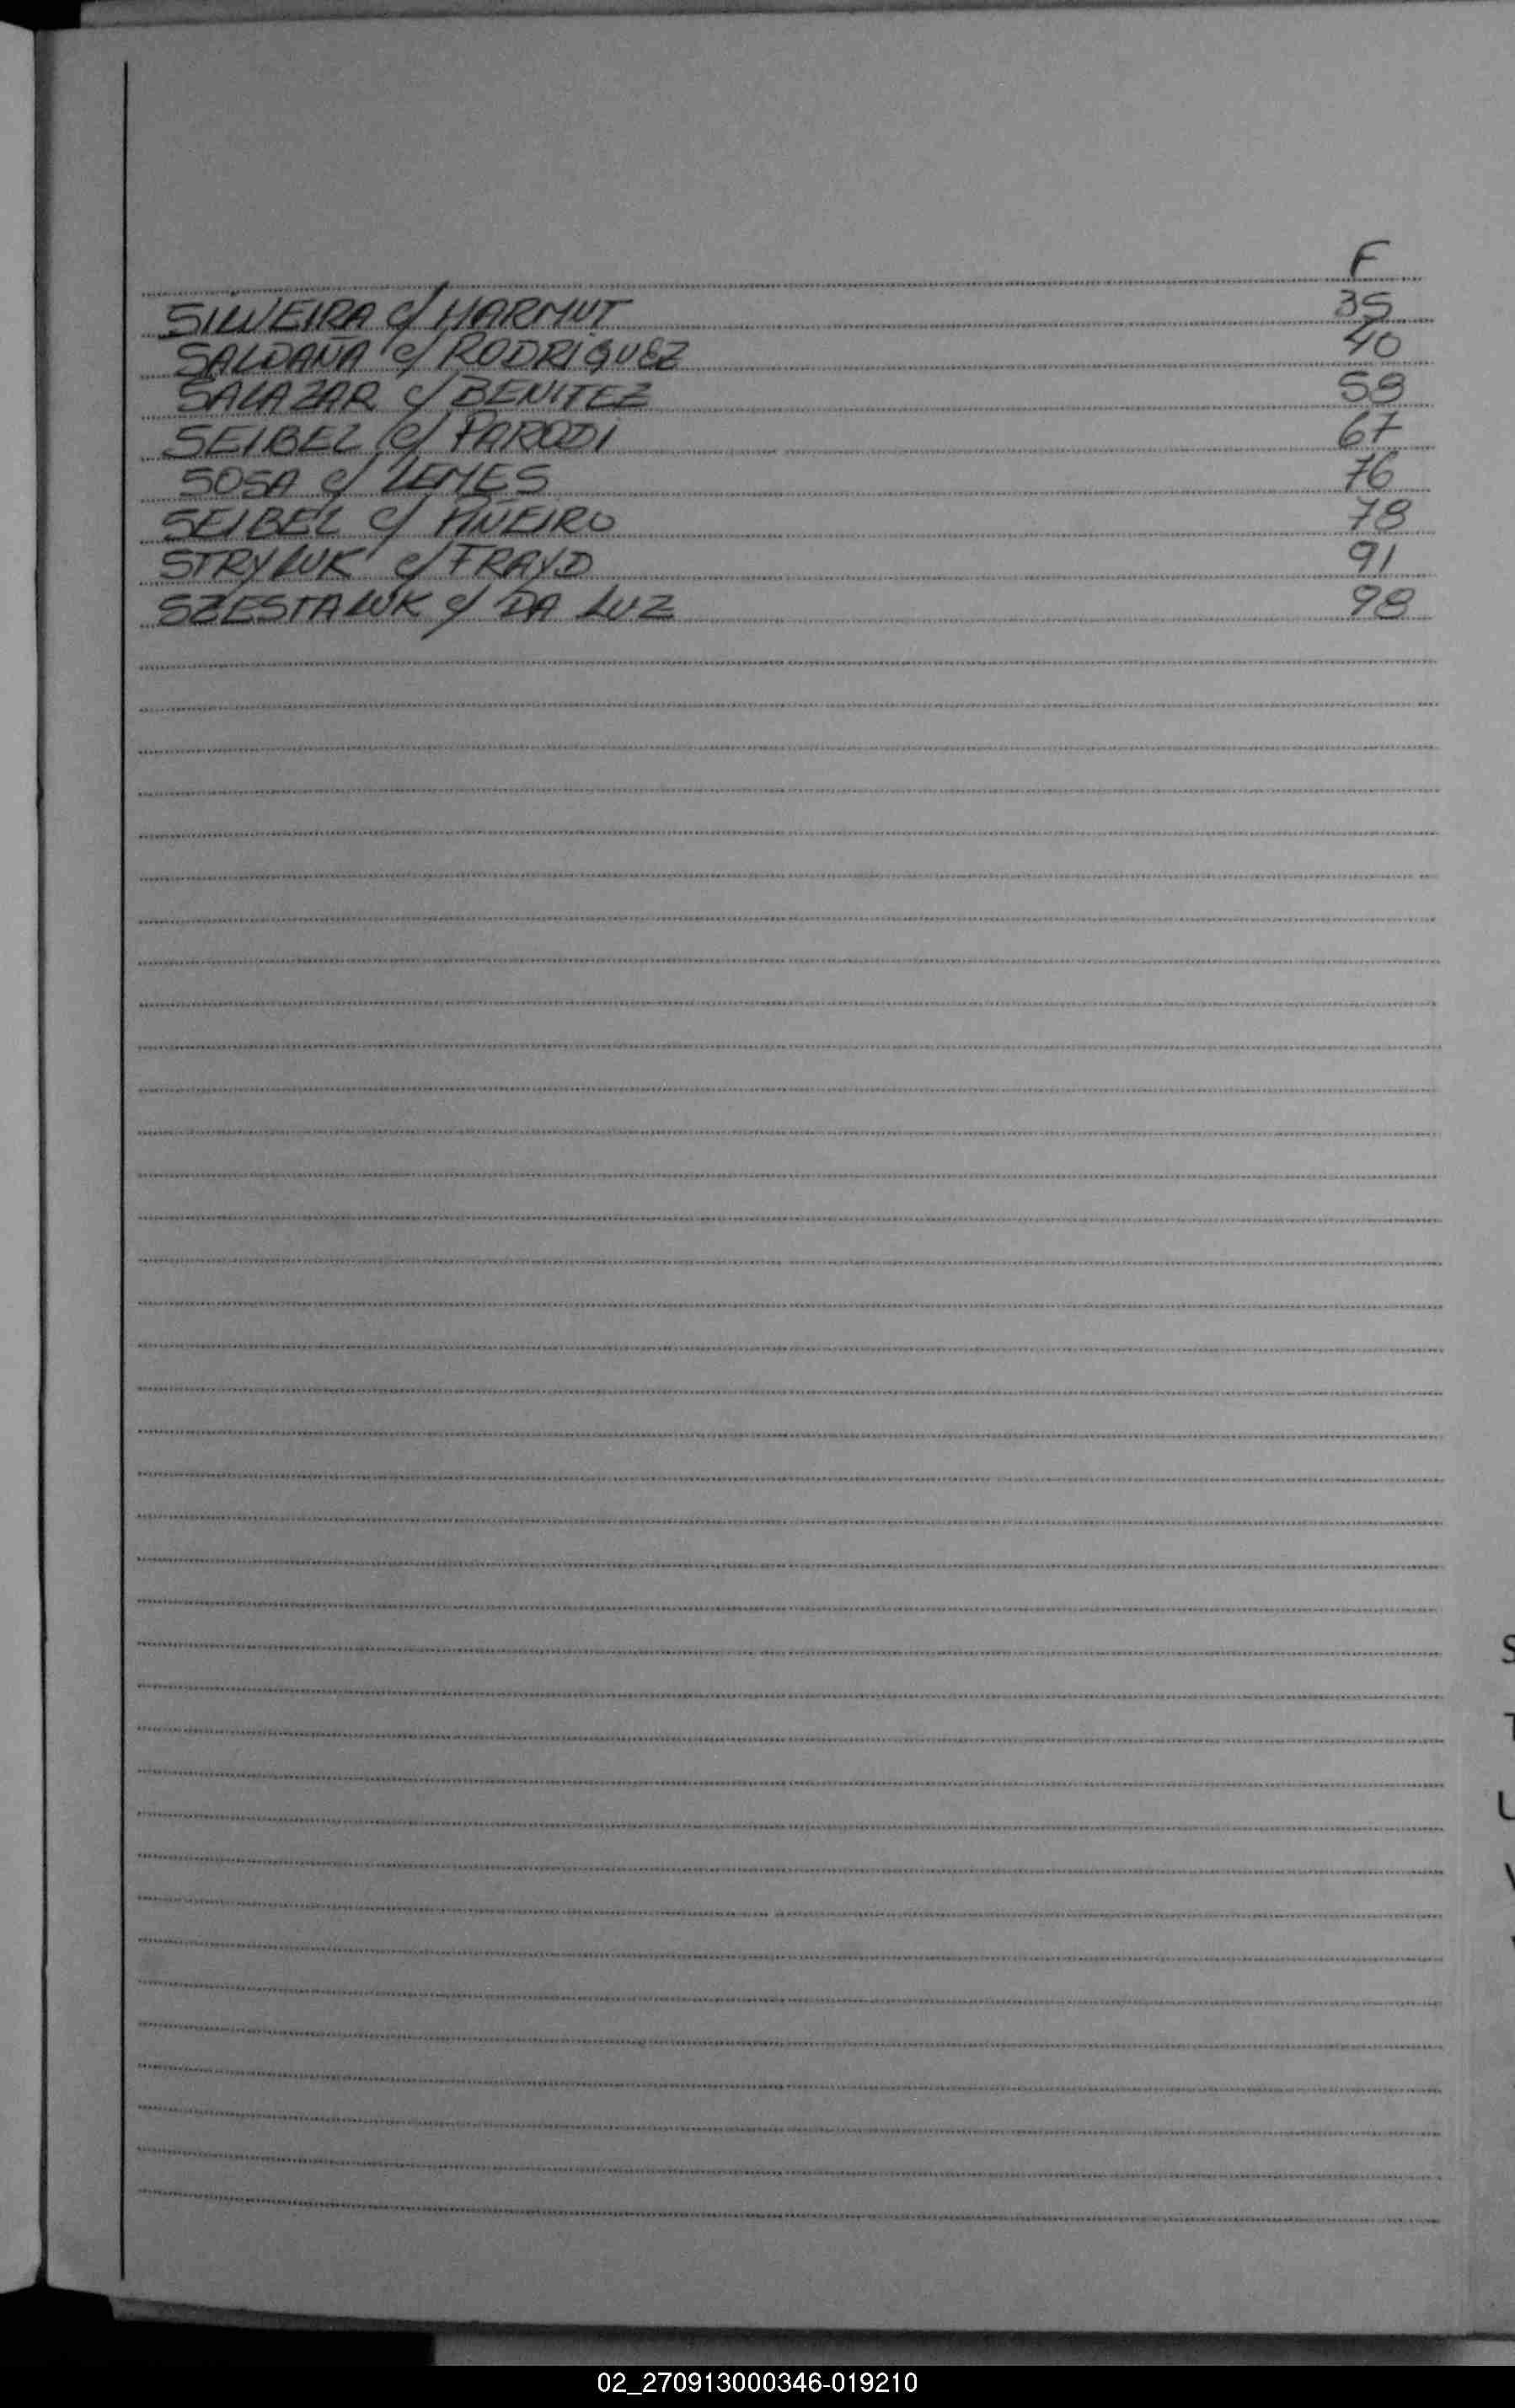 F
SILVEIRA c/ HARMUT 35
SALDAÑA c/ RODRIGUEZ 40
SALAZAR c/ BENITEZ 59
SEIBEL c/ PARODI 67
SOSA c/ LEMES 76
SEIBEL c/ PIÑEIRO 78
STRYLUK c/ FRAYD 91
SZESTALUK c/ DA LUZ 98
S
T
U
V
02_270913000346-019210